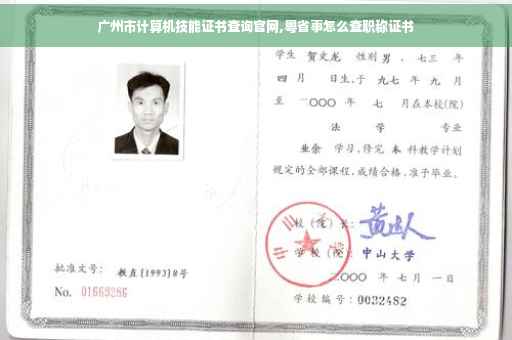 广州市计算机技能证书查询官网,粤省事怎么查职称证书
学生 贺文龙 性别 男 、七三 年
四 月 日生,于 九七 年 九 月
至 二〇〇〇 年 七 月在本校(院)
法 学 专业
业余 学习,修完 本 科教学计划
规定的全部课程,成绩合格,准予毕业。
校 (院) 长:
学 校 (院): 中山大学
二〇〇〇 年 七 月 一 日
学校编号: 0032482
批准文号: 教直[1993]8号
No. 01669286